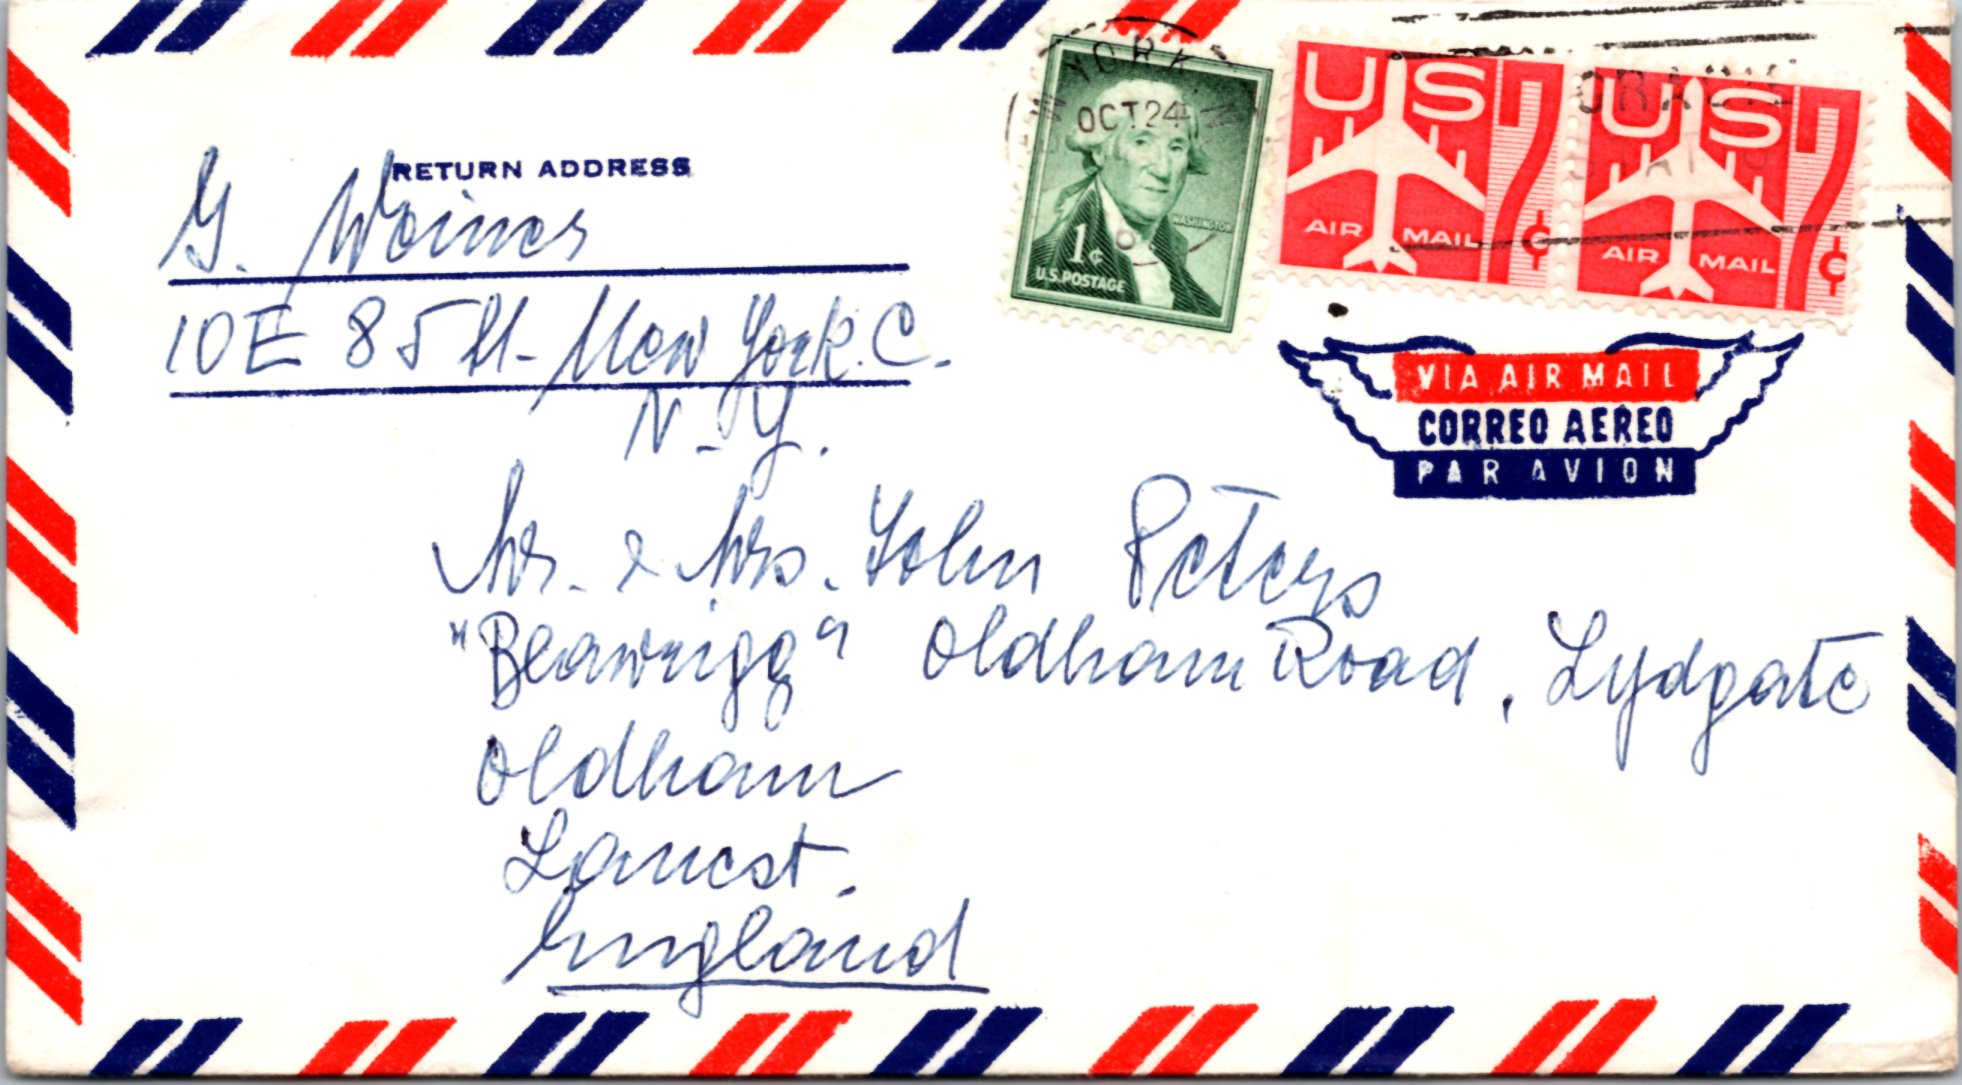 RETURN ADDRESS
G. Weiner
10 E 85 St - New York. C.
N-Y.
YORK, N
OCT 24
WASHINGTON
1¢
U.S.POSTAGE
US 7¢
AIR MAIL
US 7¢
AIR MAIL
VIA AIR MAIL
CORREO AEREO
PAR AVION
Mr. & Mrs. John Peters
"Beawrigg" Oldham Road, Lydgate
Oldham
Lancst.
England